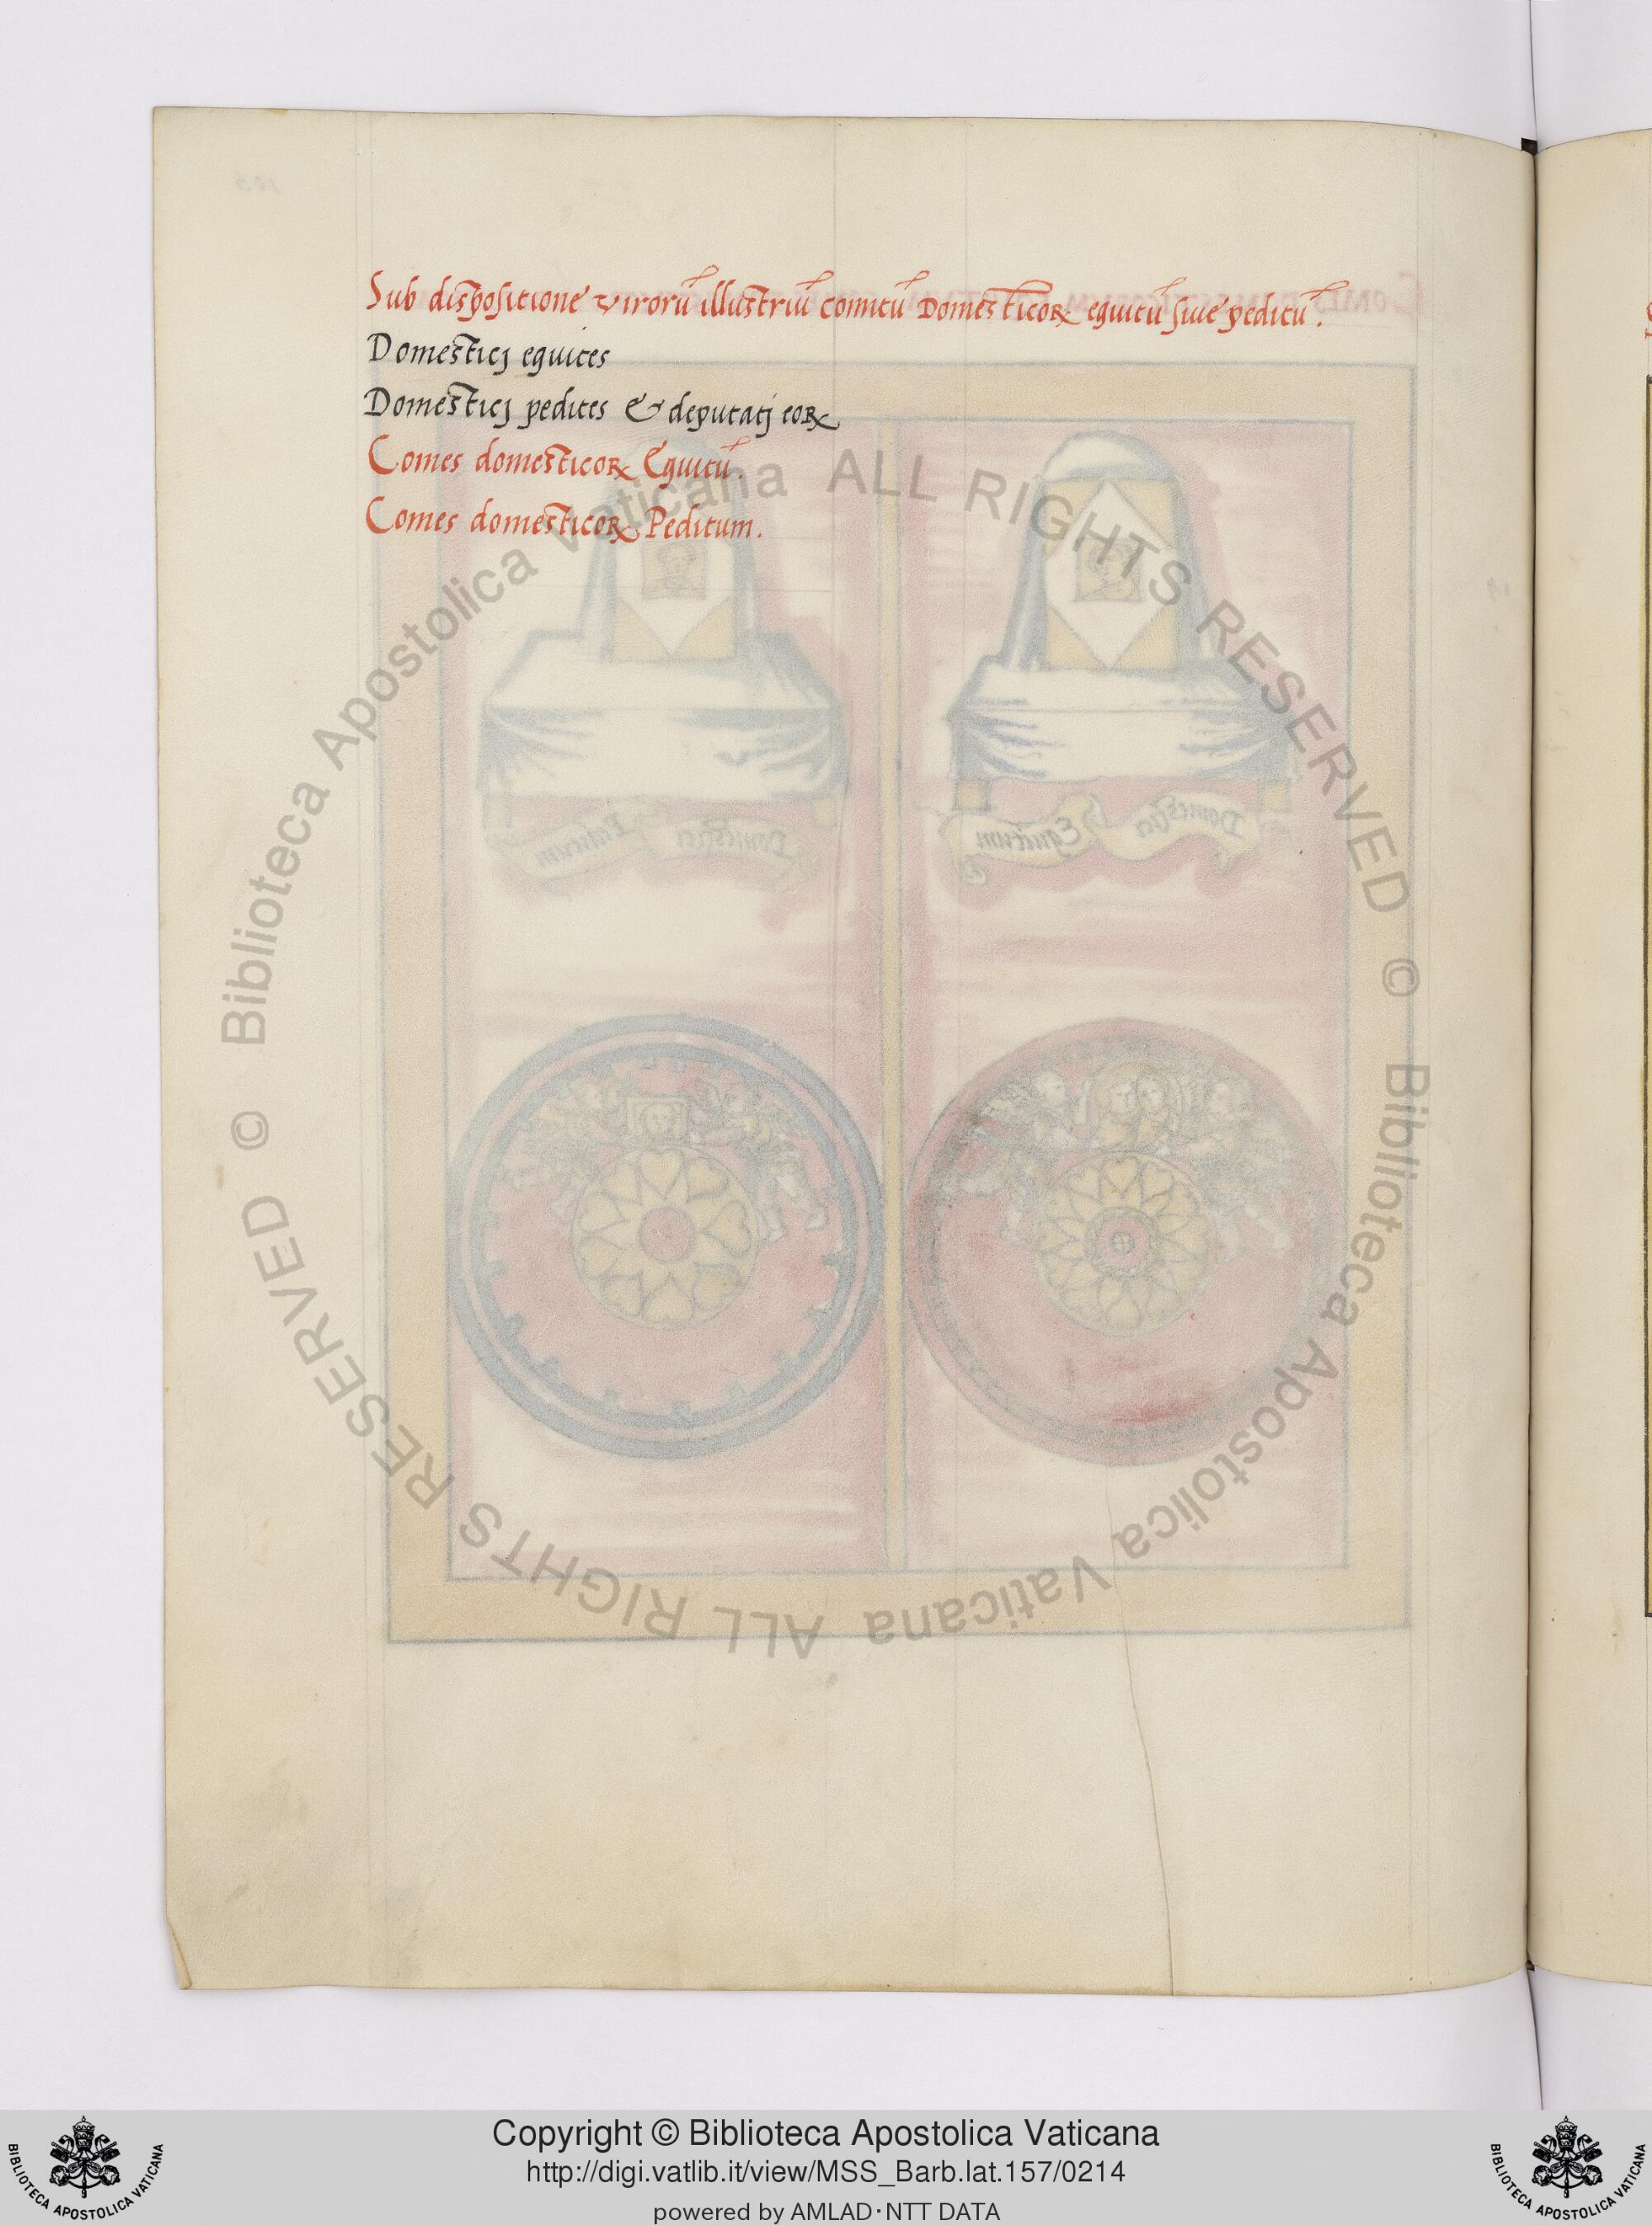 Sub dispositione virorū illustriū comitū Domesticoꝝ equitū siue peditū.
Domesticj equites
Domesticj pedites & deputatj eoꝝ
Comes domesticoꝝ Equitū.
Comes domesticoꝝ Peditum.
Domestici Peditum
Domestici Equitum
© Biblioteca Apostolica Vaticana ALL RIGHTS RESERVED © Biblioteca Apostolica Vaticana ALL RIGHTS RESERVED
Copyright © Biblioteca Apostolica Vaticana
http://digi.vatlib.it/view/MSS_Barb.lat.157/0214
powered by AMLAD·NTT DATA
BIBLIOTECA APOSTOLICA VATICANA
BIBLIOTECA APOSTOLICA VATICANA